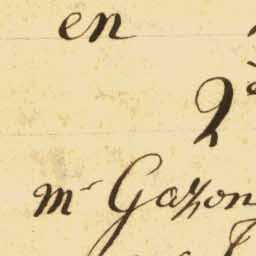 en
2
mr Gazon